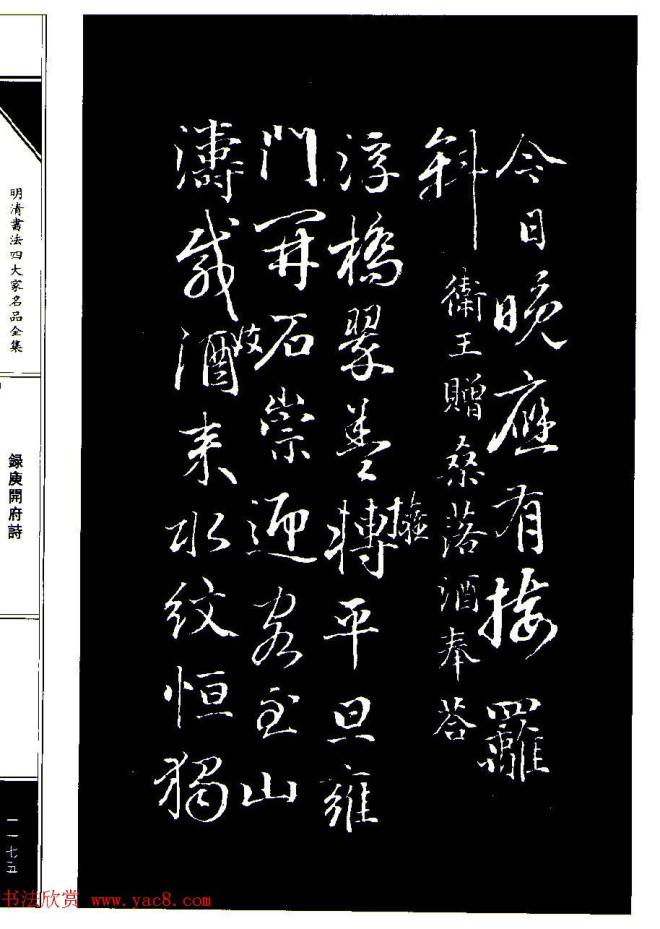 今日晚應有接䍦
斜 衛王贈桑落酒奉荅
浮橋翠蓋轉平旦雍
擁
門開石崇迎客至山
濤載酒来水紋恒獨
妓
明清書法四大家名品全集
録庾開府詩
一一七五
书法欣赏 www.yac8.com